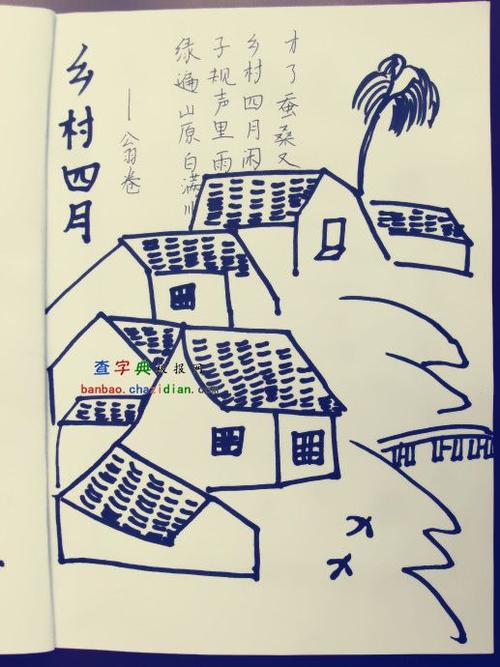 乡村四月
——翁卷
绿遍山原白满川
子规声里雨
乡村四月闲
才了蚕桑又
查字典板报网
banbao.chazidian.com